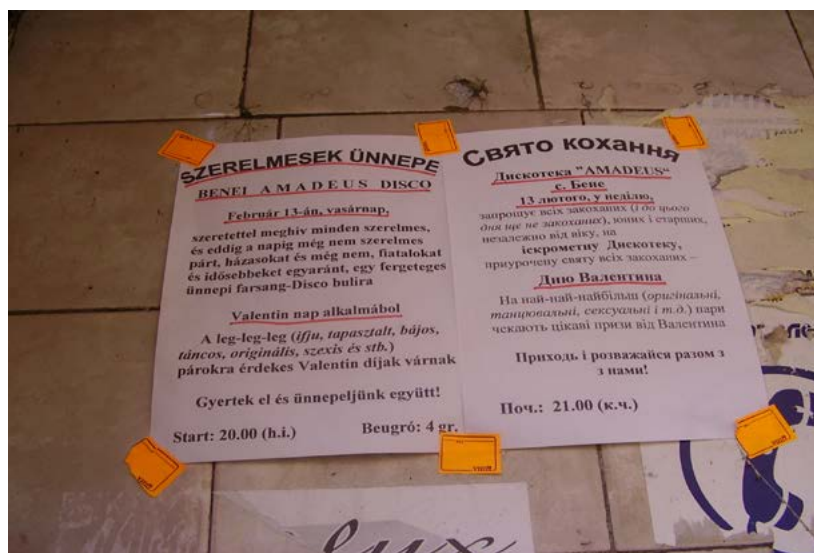 SZERELMESEK ÜNNEPE
BENEI AMADEUS DISCO
Február 13-án, vasárnap,
szeretettel meghív minden szerelmes,
és eddig a napig még nem szerelmes
párt, házasokat és még nem, fiatalokat
és idősebbeket egyaránt, egy fergeteges
ünnepi farsang-Disco bulira
Valentin nap alkalmából
A leg-leg-leg (ifju, tapasztalt, bájos,
táncos, originális, szexis és stb.)
párokra érdekes Valentin díjak várnak
Gyertek el és ünnepeljünk együtt!
Start: 20.00 (h.i.) Beugró: 4 gr.
Свято кохання
Дискотека "AMADEUS"
с. Бене
13 лютого, у неділю,
запрошує всіх закоханих (і до цього
дня ще не закоханих), юних і старших,
незалежно від віку, на
іскрометну Дискотеку,
приурочену святу всіх закоханих –
Дню Валентина
На най-най-найбільш (оригінальні,
танцювальні, сексуальні і т.д.) пари
чекають цікаві призи від Валентина
Приходь і розважайся разом з
з нами!
Поч.: 21.00 (к.ч.)
lux